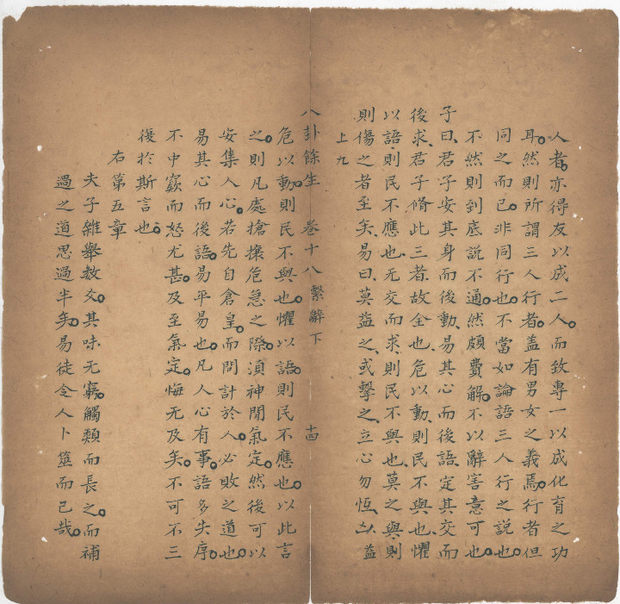 人者亦得友以成二人而致專一以成化育之功
耳然則所謂三人行者蓋有男女之義焉行者但
同之而已非同行也不當如論語三人行之說也
不然則到底説不通然頗費解不以辭害意可也
子曰君子安其身而後動易其心而後語定其交而
後求君子脩此三者故全也危以動則民不與也懼
以語則民不應也无交而求則民不與也莫之與則
則傷之者至矣易曰莫益之或擊之立心勿恆凶益
上九
八卦餘生 卷十八 繫辭下 十四
危以動則民不與也懼以語則民不應也以此言
之則凡處搶攘危急之際須神閒氣定然後可以
安集人心若先自倉皇而問計於人必敗之道也
易其心而後語易平易也凡人心有事語多失序
不中窾而怒尤甚及至氣定悔无及矣不可不三
復於斯言也
右第五章
夫子雜舉數爻其味无窮觸類而長之而補
過之道思過半矣易徒令人卜筮而已哉